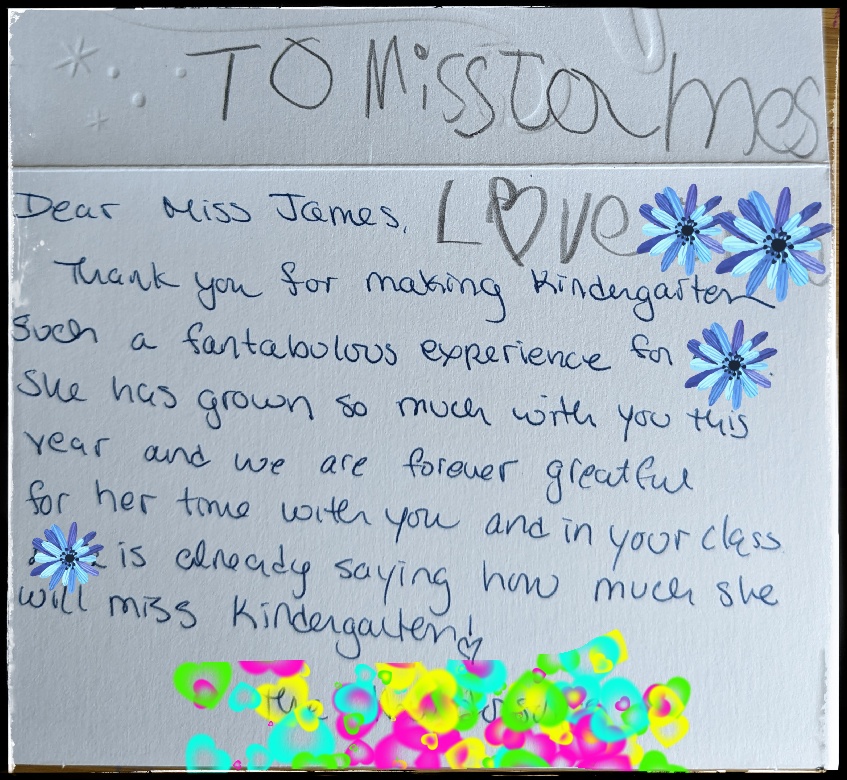 TO Miss James
Dear Miss James, LOVE
Thank you for making Kindergarten
such a fantabulous experience for
she has grown so much with you this
year and we are forever greatful
for her time with you and in your class
is already saying how much she
will miss Kindergarten!